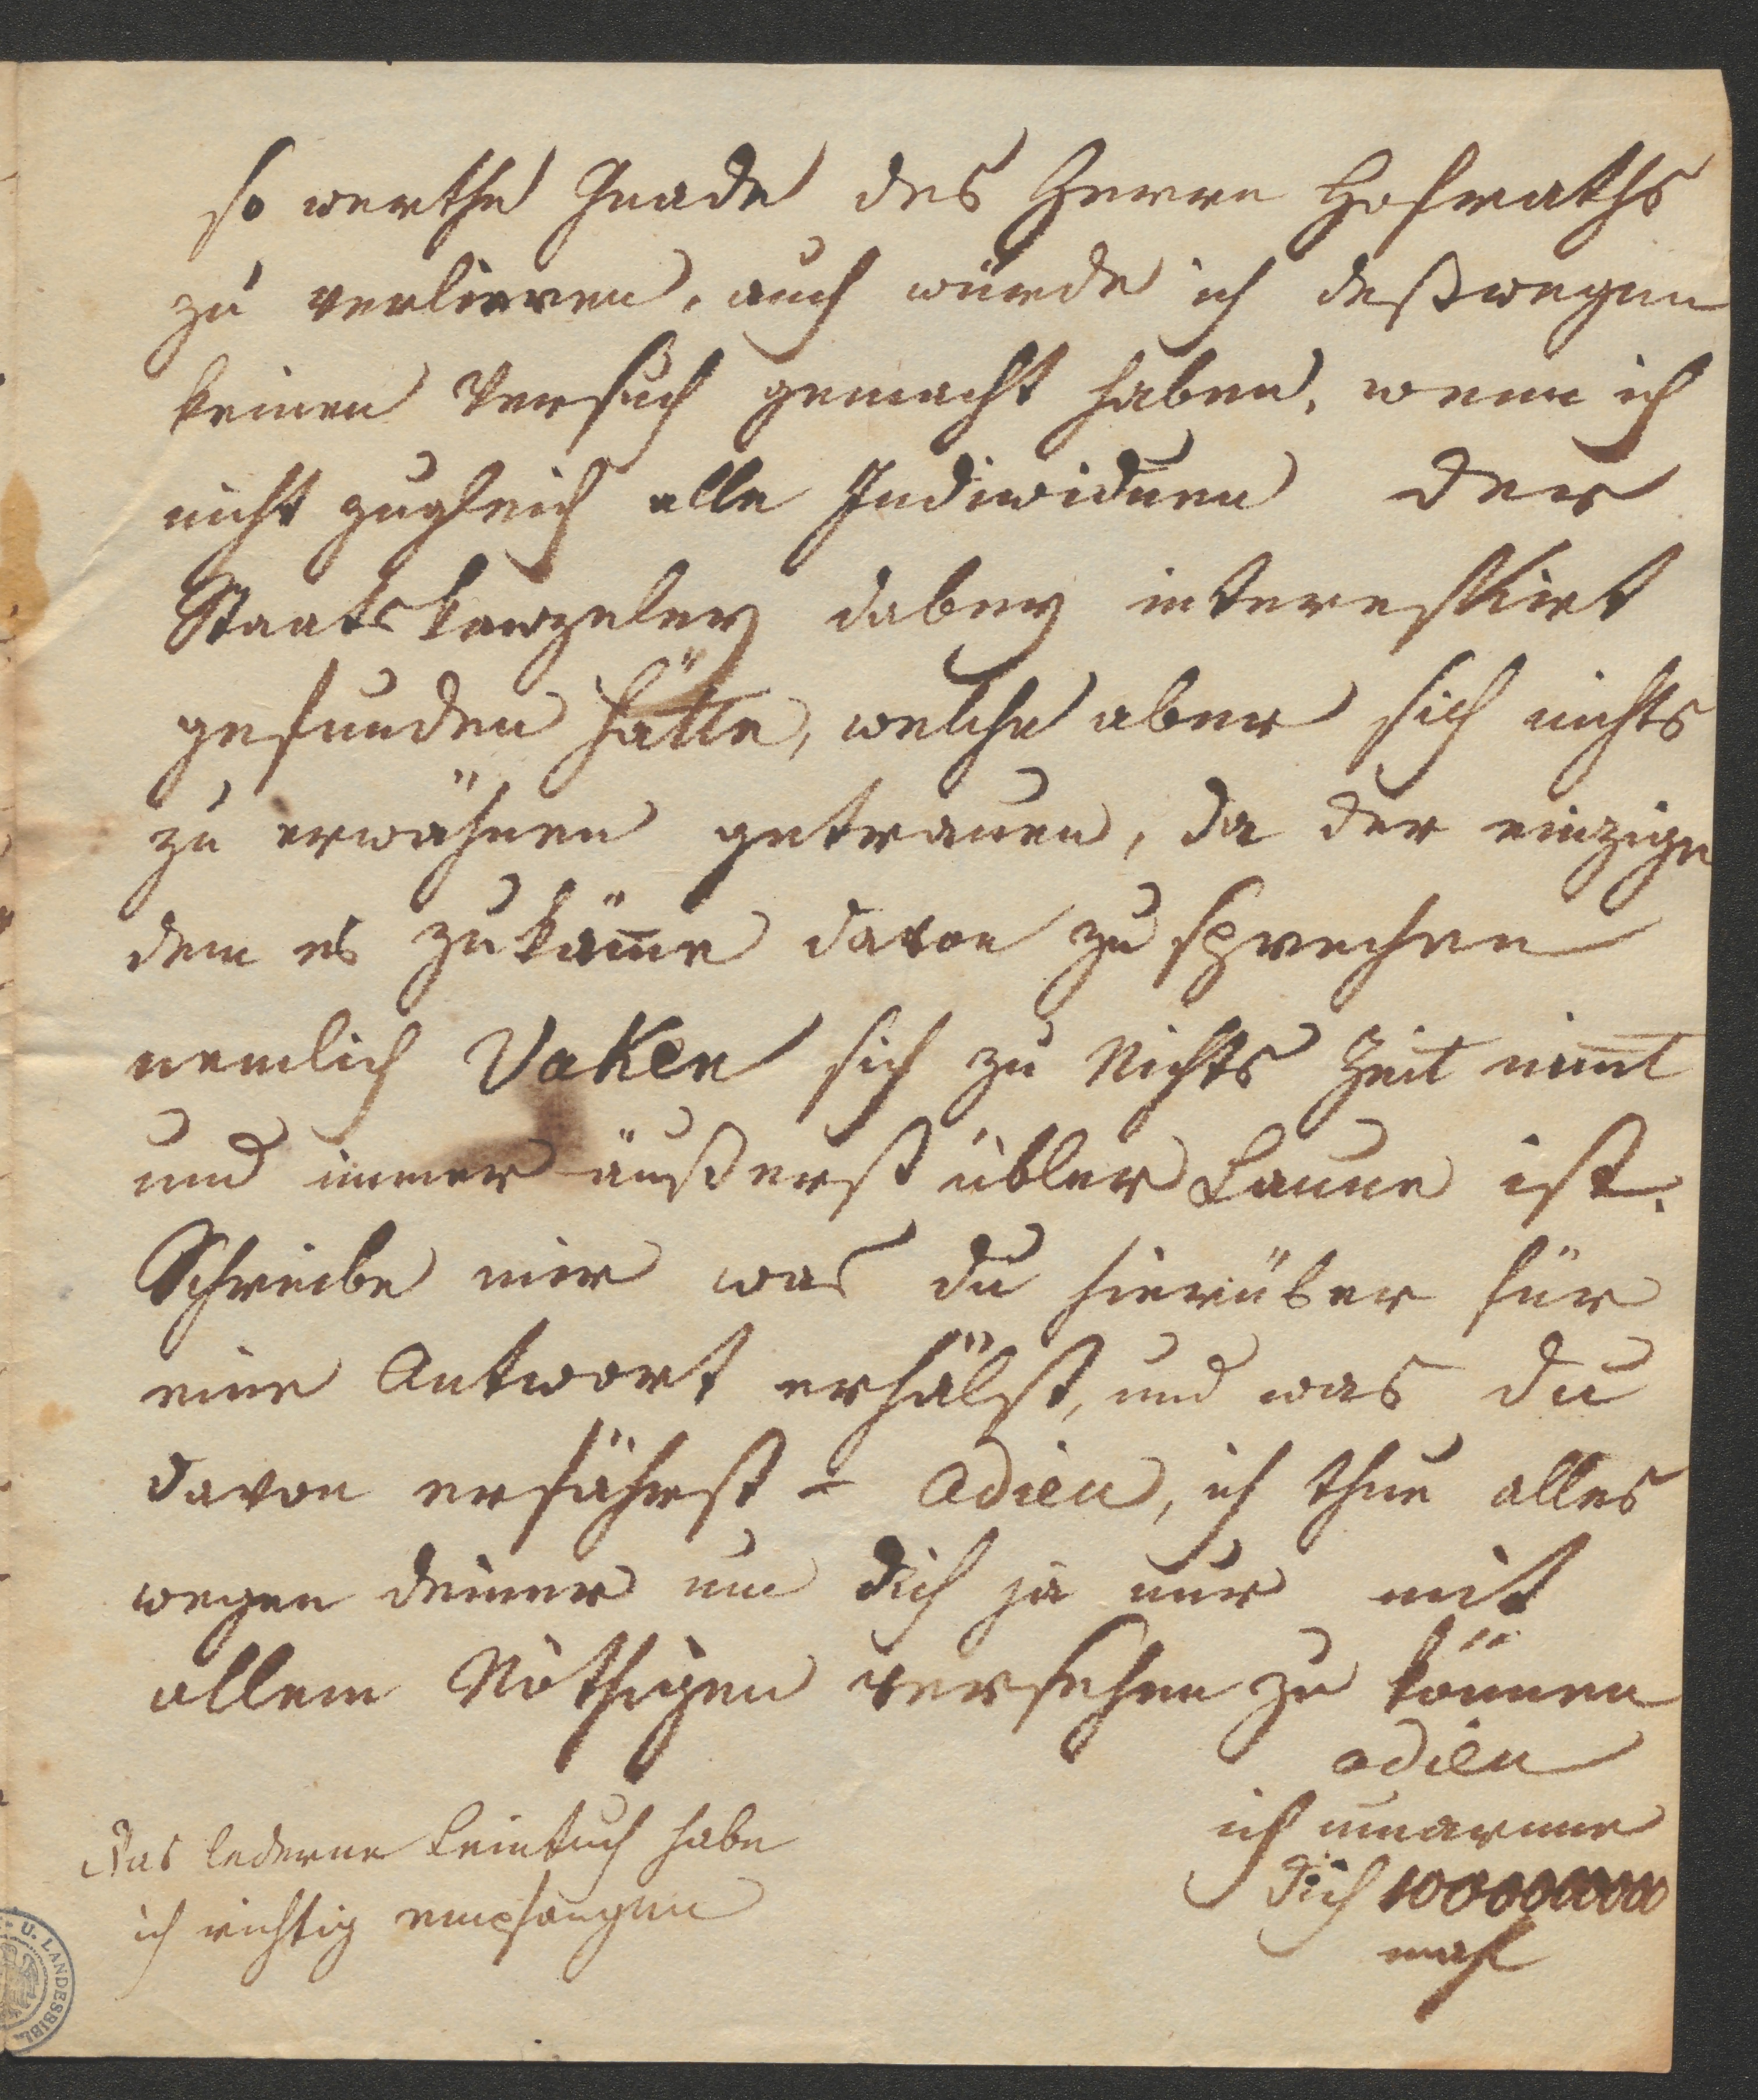 so werthe Gnade des Herrn Hofraths
zu verlieren, auch würde ich deßwegen
keinen Versuch gemacht haben, wenn ich
nicht zugleich alle Indiwiduen der
Staatskanzeley dabey interessirt
gefunden hätte, welche aber sich nichts
zu erwähnen getrauen, da der einzige
dem es zukäm̅e davon zu sprechen
nemlich Vaken sich zu Nichts Zeit nim̅t
und immer äußerst übler Laune ist.
Schreibe mir was du hierüber für
eine Antwort erhälst, und was du
davon erfährst – Adieu, ich thue alles
wegen deiner um dich ja nur mit
allem Nöthigen versehen zu können
adieu
ich umarme
dich 1000000000
mahl
Das lederne Leintuch habe
ich richtig empfangen
U. LANDESBIBL.